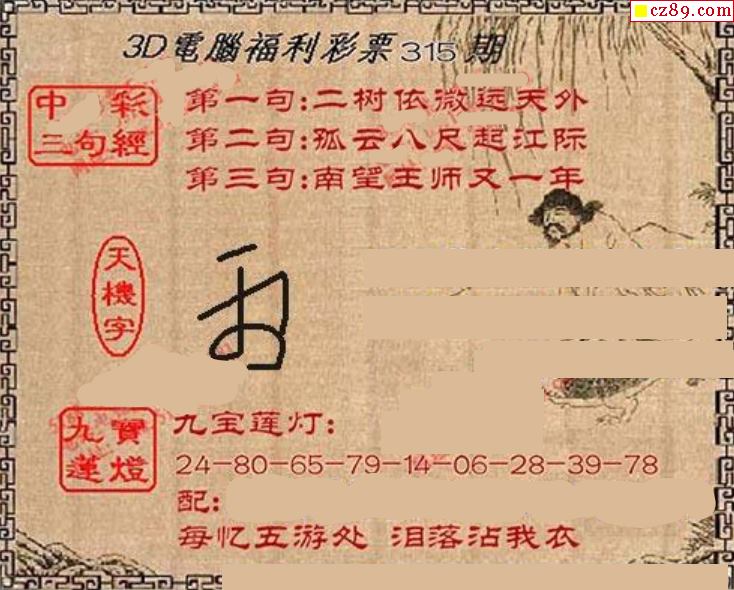 cz89.com
3D電腦福利彩票315期
中彩
三句經
第一句:二树依微远天外
第二句:孤云八尺起江际
第三句:南望王师又一年
天機字
九寶
蓮燈
九宝莲灯:
24-80-65-79-14-06-28-39-78
配:
每忆五游处 泪落沾我衣